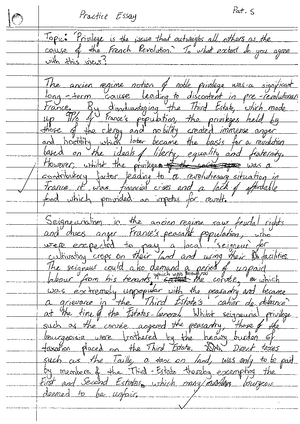 Practice Essay
Pat. S
Topic: "Privilege is the issue that outweighs all others as the
cause of the French Revolution." To what extent do you agree
with this view?
The ancien regime notion of noble privilege was a significant
long-term cause leading to discontent in pre-revolutionary
France. By disadvantaging the Third Estate, which made
up 97% of France's population, the privileges held by
those of the clergy and nobility created immense anger
and hostility which later became the basis for a revolution
based on the ideals of liberty, equality and fraternity.
However, whilst the privileges was a
contributory factor leading to a revolutionary situation in
France, it was financial crises and a lack of affordable
food which provided an impetus for revolt.
Seigneurialism in the ancien regime saw feudal rights
and dues anger France's peasant population, who
were expected to pay a local 'seigneur' for
cultivating crops on their land and using their facilities.
The seigneur could also demand a period of unpaid
labour from his tenants, the corvee,
was extremely unpopular with the peasantry and became
a grievance in the Third Estate's 'cahier de doleance'
at the time of the Estates General. Whilst seigneurial privilege
such as the corvee angered the peasantry, those of the
bourgeoisie were bothered by the heavy burden of
taxation placed on the Third Estate. Direct taxes
such as the Taille, a tax on land, was only to be paid
by members of the Third Estate thereby exempting the
First and Second Estates, which many bourgeois
deemed to be unfair.